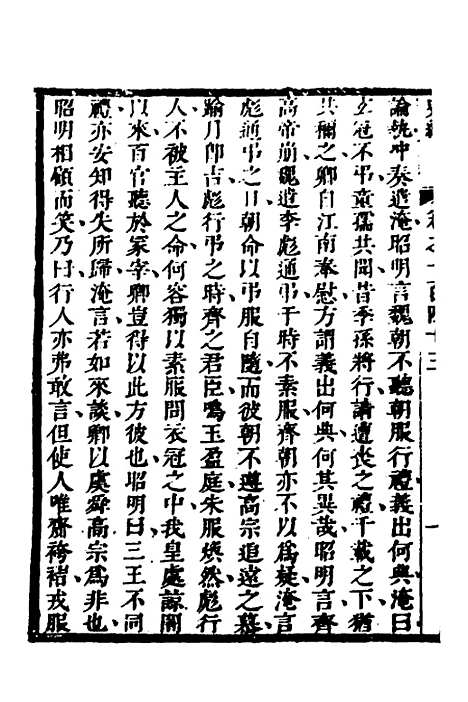 卷之一百四十三
一
論執沖奏遣淹昭明言魏朝不聽朝服行禮義出何典淹曰
玄冠不弔童孺共聞昔季孫將行請遭喪之禮千載之下猶
共稱之卿自江南奉慰方謂義出何典何其異哉昭明言齊
高帝崩魏遣李彪通弔于時不素服齊朝亦不以爲疑淹言
彪通弔之日朝命以弔服自隨而彼朝不遵高宗追遠之慕
踰月即吉彪行弔之時齊之君臣鳴玉盈庭朱服煥然彪行
人不被主人之命何容獨以素服間衣冠之中我皇處諒闇
以來百官聽於冢宰卿豈得以此方彼也昭明曰三王不同
禮亦安知得失所歸淹言若如來談卿以虞舜高宗爲非也
昭明相顧而笑乃曰行人亦弗敢言但使人唯齎袴褶戎服